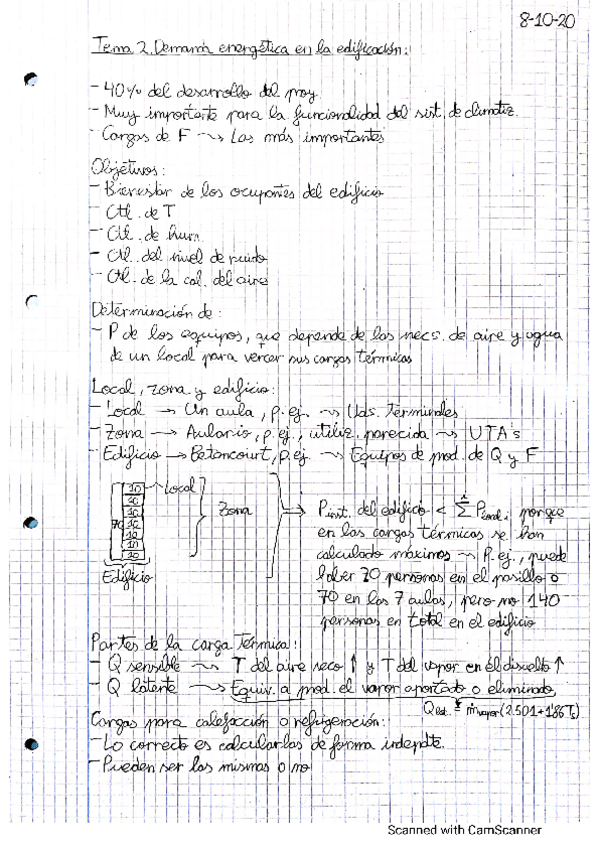 8-10-20
Tema 2. Demanda energética en la edificación:
- 40% del desarrollo del proy.
- Muy importante para la funcionalidad del sist. de climatiz.
- Cargas de F ⟿ Las más importantes
Objetivos:
- Bienestar de los ocupantes del edificio
- Ctl. de T
- Ctl. de hum.
- Ctl. del nivel de ruido
- Ctl. de la cal. del aire
Determinación de:
- P de los equipos, que depende de las necs. de aire y agua
de un local para vencer sus cargas térmicas
Local, zona y edificio:
- Local → Un aula, p. ej. ⟿ Uds. terminales
- Zona → Aulario, p. ej., utiliz. parecida ⟿ UTA's
- Edificio → Betancourt, p. ej. ⟿ Equipos de prod. de Q y F
10
10
10
10
10
10
10
70
Local
Zona
Edificio
⇒ P inst. del edificio < Σ P local, i porque
en las cargas térmicas se han
calculado máximos ⟿ P. ej., puede
haber 70 personas en el pasillo o
70 en las 7 aulas, pero no 140
personas en total en el edificio
Partes de la carga térmica:
- Q sensible ⟿ T del aire seco ↑ y T del vapor en él disuelto ↑
- Q latente ⟿ Equiv. a prod. el vapor aportado o eliminado
Q lat. = ṁ vapor (2.501 + 1'86 Ts)
Cargas para calefacción o refrigeración:
- Lo correcto es calcularlas de forma indepdte.
- Pueden ser las mismas o no
Scanned with CamScanner